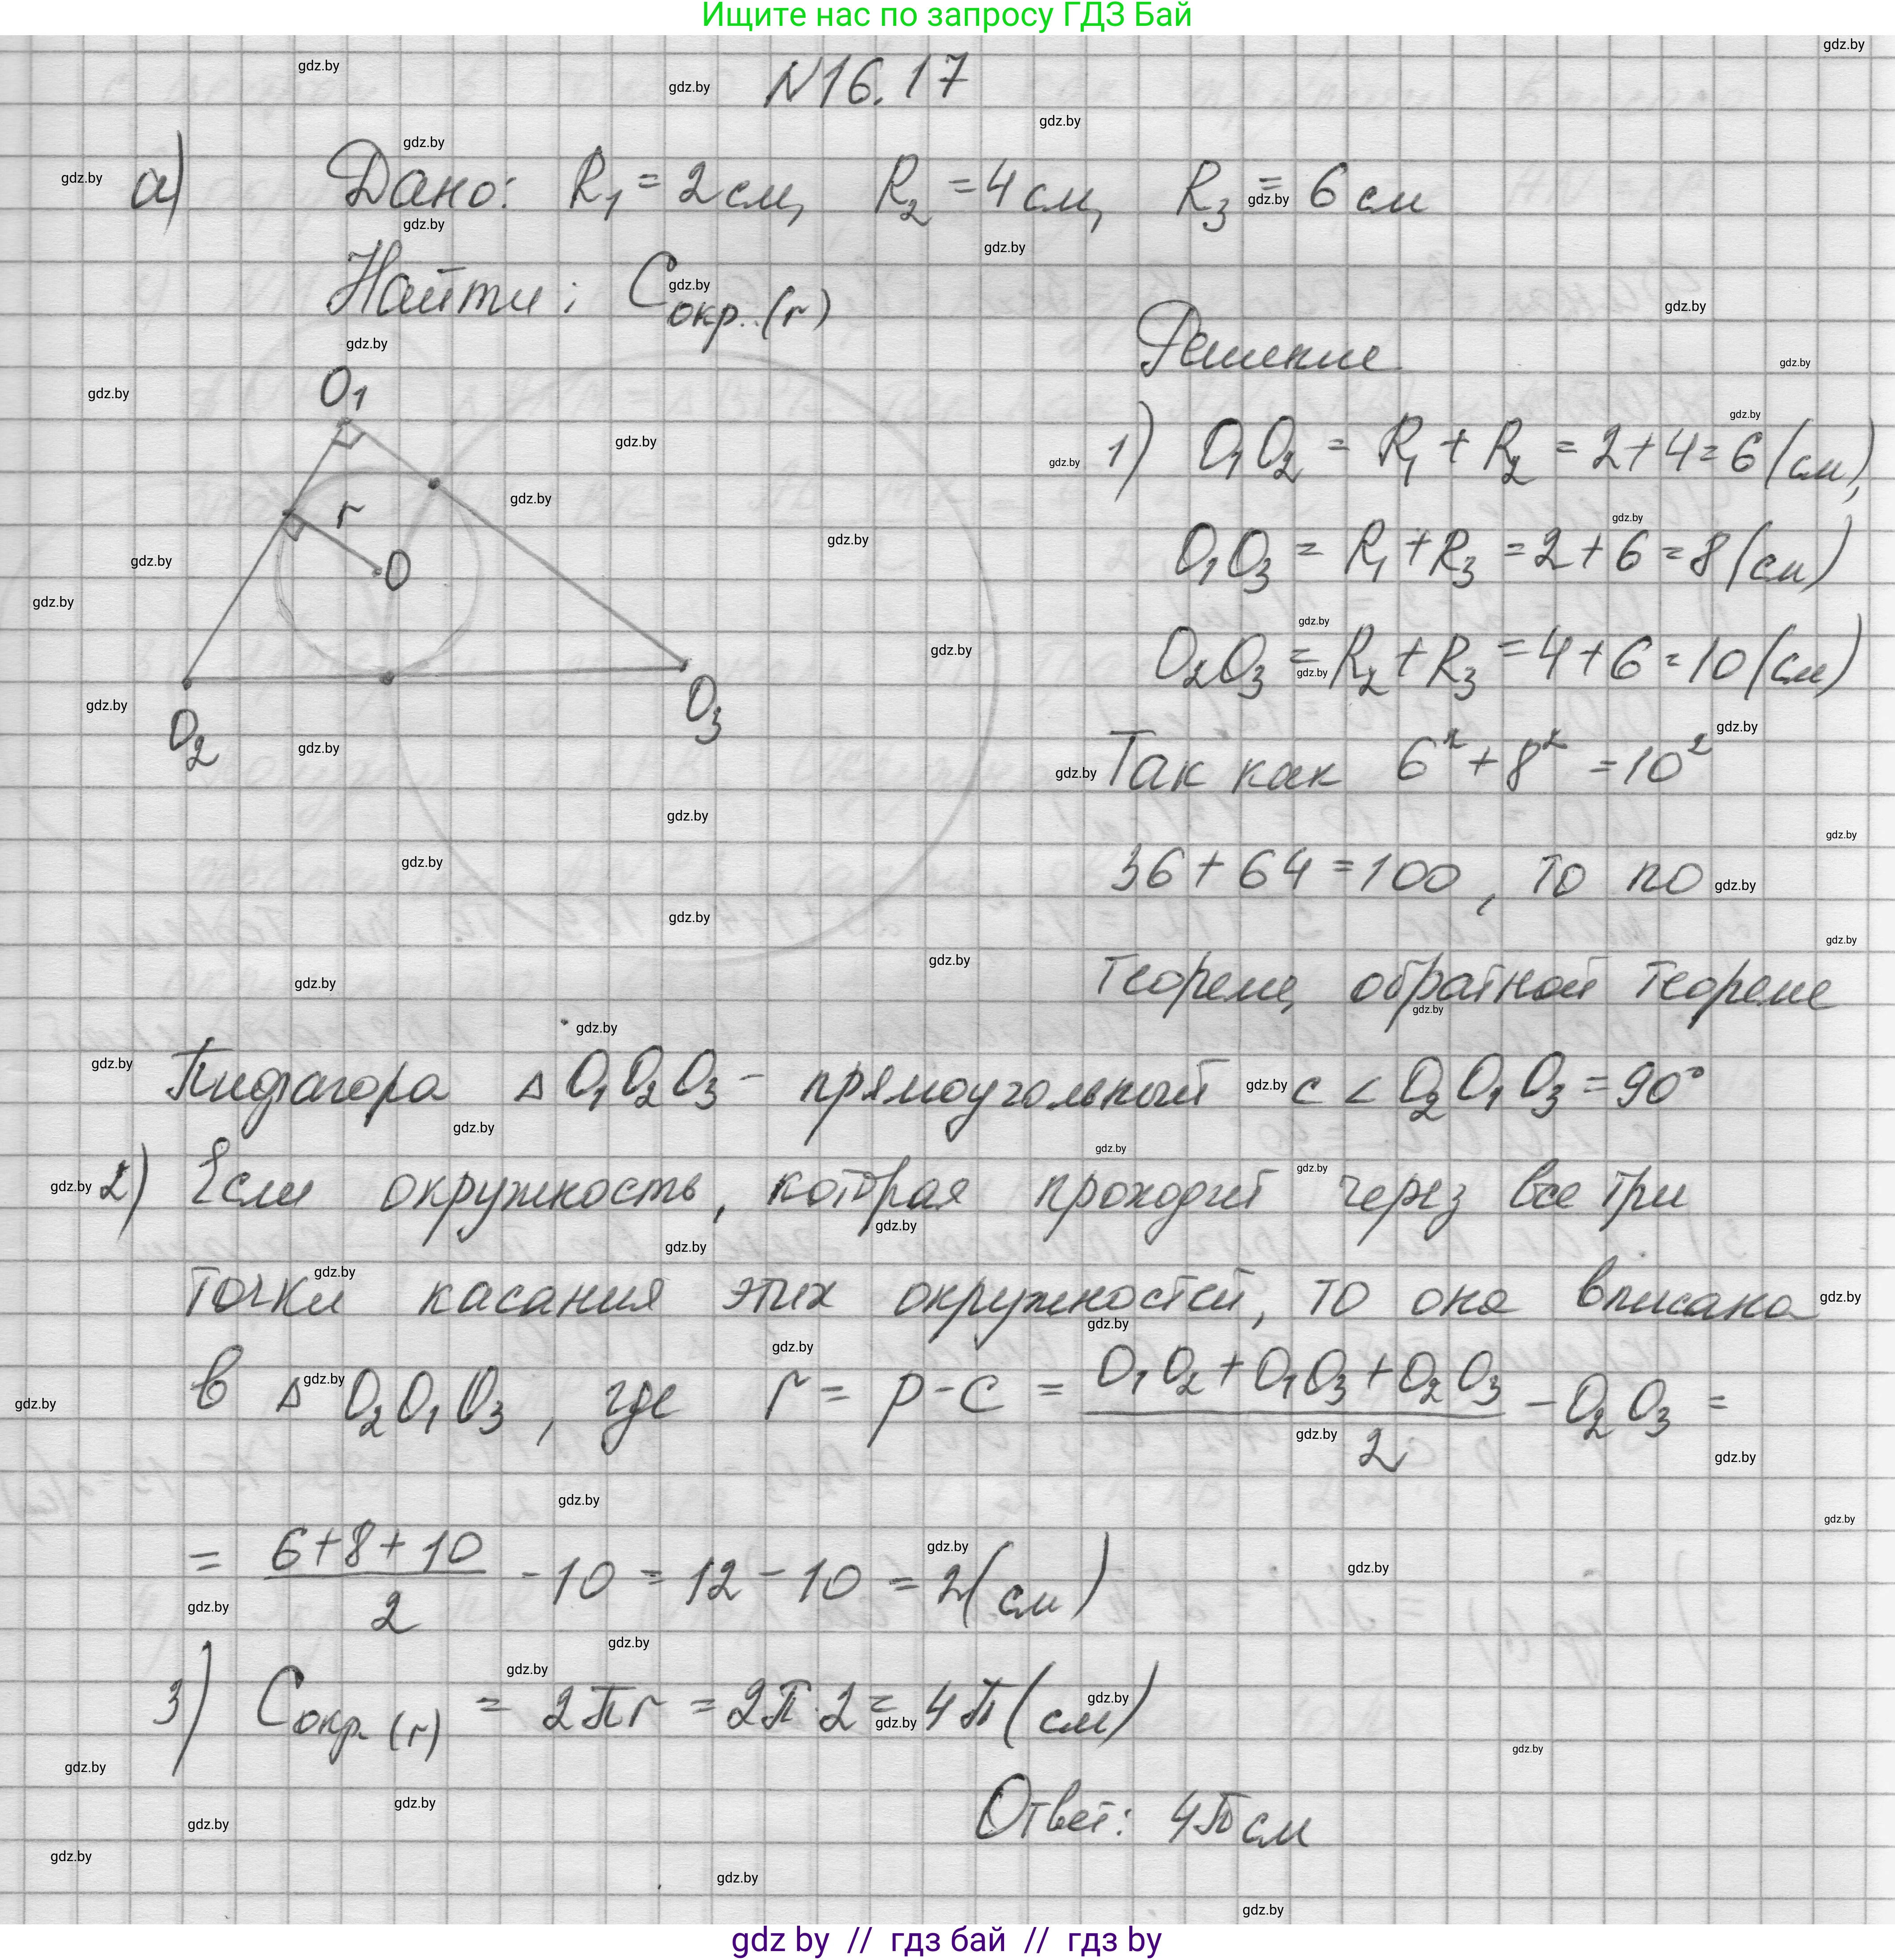 Ищите нас по запросу ГДЗ Бай
N16.17
а) Дано: R₁ = 2 см, R₂ = 4 см, R₃ = 6 см
Найти: Cокр.(r)
Решение
O₁
r
O
O₂
O₃
1) O₁O₂ = R₁ + R₂ = 2 + 4 = 6 (см),
O₁O₃ = R₁ + R₃ = 2 + 6 = 8 (см)
O₂O₃ = R₂ + R₃ = 4 + 6 = 10 (см)
Так как 6² + 8² = 10²
36 + 64 = 100, то по
теореме, обратной теореме
Пифагора △ O₁O₂O₃ - прямоугольный с ∠ O₂O₁O₃ = 90°
2) Если окружность, которая проходит через все три
точки касания этих окружностей, то она вписана
в △ O₂O₁O₃, где r = p - c = (O₁O₂ + O₁O₃ + O₂O₃)/2 - O₂O₃ =
= (6 + 8 + 10)/2 - 10 = 12 - 10 = 2 (см)
3) Cокр (r) = 2πr = 2π · 2 = 4π (см)
Ответ: 4π см
gdz by // гдз бай // гдз by